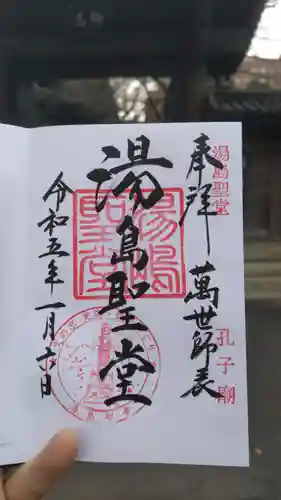 奉拝
湯島聖堂
萬世師表
孔子廟
湯島聖堂
湯島聖堂
令和五年一月六日